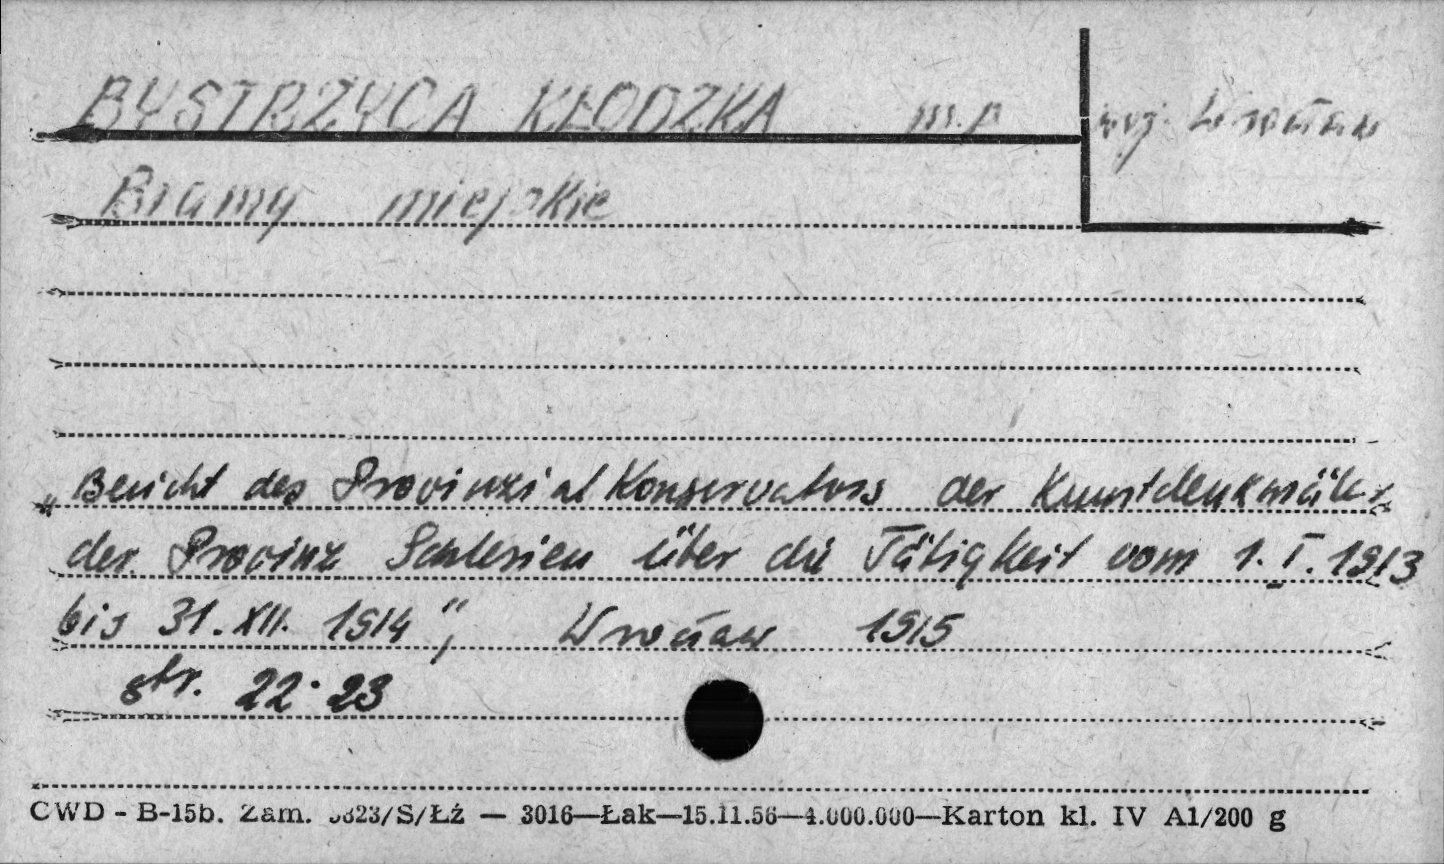 BYSTRZYCA KŁODZKA m.p woj. Wrocław
Bramy miejskie
„Bericht des Provinzial Konservators der Kunstdenkmäler
der Provinz Schlesien über die Tätigkeit vom 1. I. 1913
bis 31. XII. 1914", Wrocław 1915
str. 22-23
CWD - B-15b. Zam. 823/S/Łź — 3016—Łak—15.11.56—4.000.000—Karton kl. IV A1/200 g